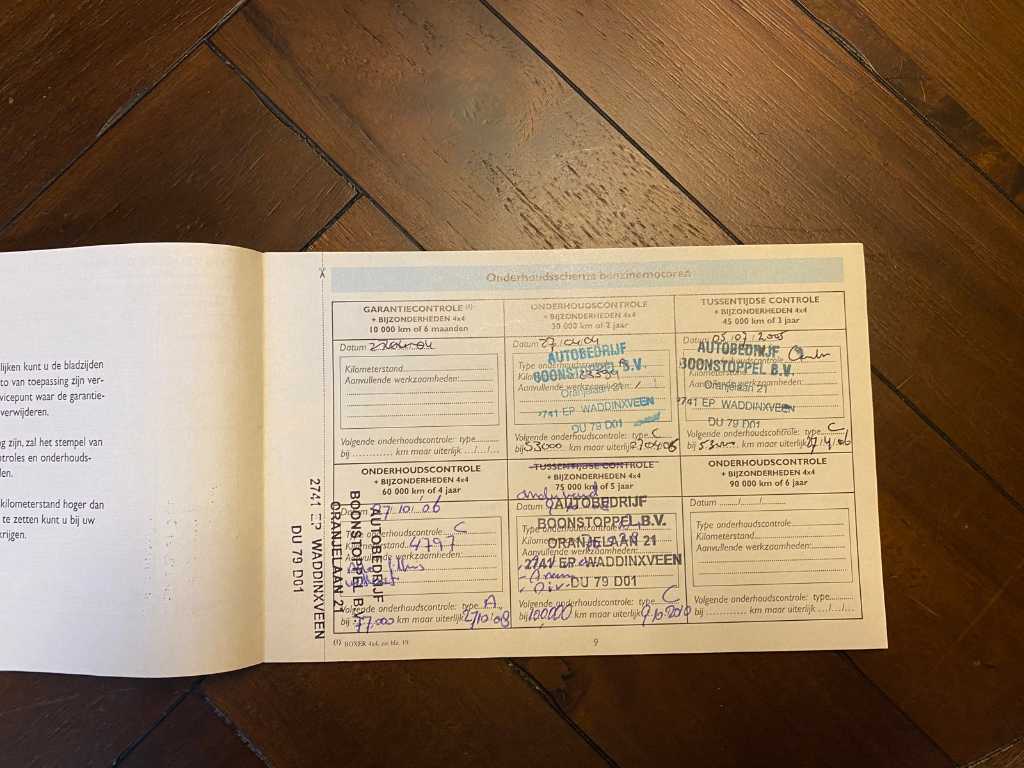 lijken kunt u de bladzijden
to van toepassing zijn ver-
vicepunt waar de garantie-
verwijderen.
g zijn, zal het stempel van
ntroles en onderhouds-
len.
kilometerstand hoger dan
te zetten kunt u bij uw
krijgen.
Onderhoudsschema benzinemotoren
GARANTIECONTROLE (1)
+ BIJZONDERHEDEN 4x4
10 000 km of 6 maanden
Datum
Kilometerstand
Aanvullende werkzaamheden:
Volgende onderhoudscontrole: type
bij km maar uiterlijk .../.../...
ONDERHOUDSCONTROLE
+ BIJZONDERHEDEN 4x4
30 000 km of 2 jaar
Datum 27/04/04
Type onderhoudscontrole
Aanvullende werkzaamheden:
AUTOBEDRIJF
BOONSTOPPEL B.V.
Oranjelaan 21
2741 EP WADDINXVEEN
DU 79 D01
Volgende onderhoudscontrole: type C
bij 53000 km maar uiterlijk
TUSSENTIJDSE CONTROLE
+ BIJZONDERHEDEN 4x4
45 000 km of 3 jaar
Datum 05/07/2005
AUTOBEDRIJF
BOONSTOPPEL B.V.
Oranjelaan 21
2741 EP WADDINXVEEN
DU 79 D01
Volgende onderhoudscontrole: type C
bij km maar uiterlijk 27/4/06
ONDERHOUDSCONTROLE
+ BIJZONDERHEDEN 4x4
60 000 km of 4 jaar
Datum 27/10/06
Type onderhoudscontrole C
Kilometerstand
Aanvullende werkzaamheden:
AUTOBEDRIJF
BOONSTOPPEL B.V.
ORANJELAAN 21
2741 EP WADDINXVEEN
DU 79 D01
Volgende onderhoudscontrole: type A
bij 77000 km maar uiterlijk 27/10/08
TUSSENTIJDSE CONTROLE
+ BIJZONDERHEDEN 4x4
75 000 km of 5 jaar
onderhoud
Datum
Type onderhoudscontrole
Aanvullende werkzaamheden:
AUTOBEDRIJF
BOONSTOPPEL B.V.
ORANJELAAN 21
2741 EP WADDINXVEEN
DU 79 D01
Volgende onderhoudscontrole: type C
bij 100,000 km maar uiterlijk 9/10/2010
ONDERHOUDSCONTROLE
+ BIJZONDERHEDEN 4x4
90 000 km of 6 jaar
Datum ....../....../......
Type onderhoudscontrole
Kilometerstand
Aanvullende werkzaamheden:
Volgende onderhoudscontrole: type
bij km maar uiterlijk .../.../...
(1) BOXER 4x4, zie blz. 19.
9